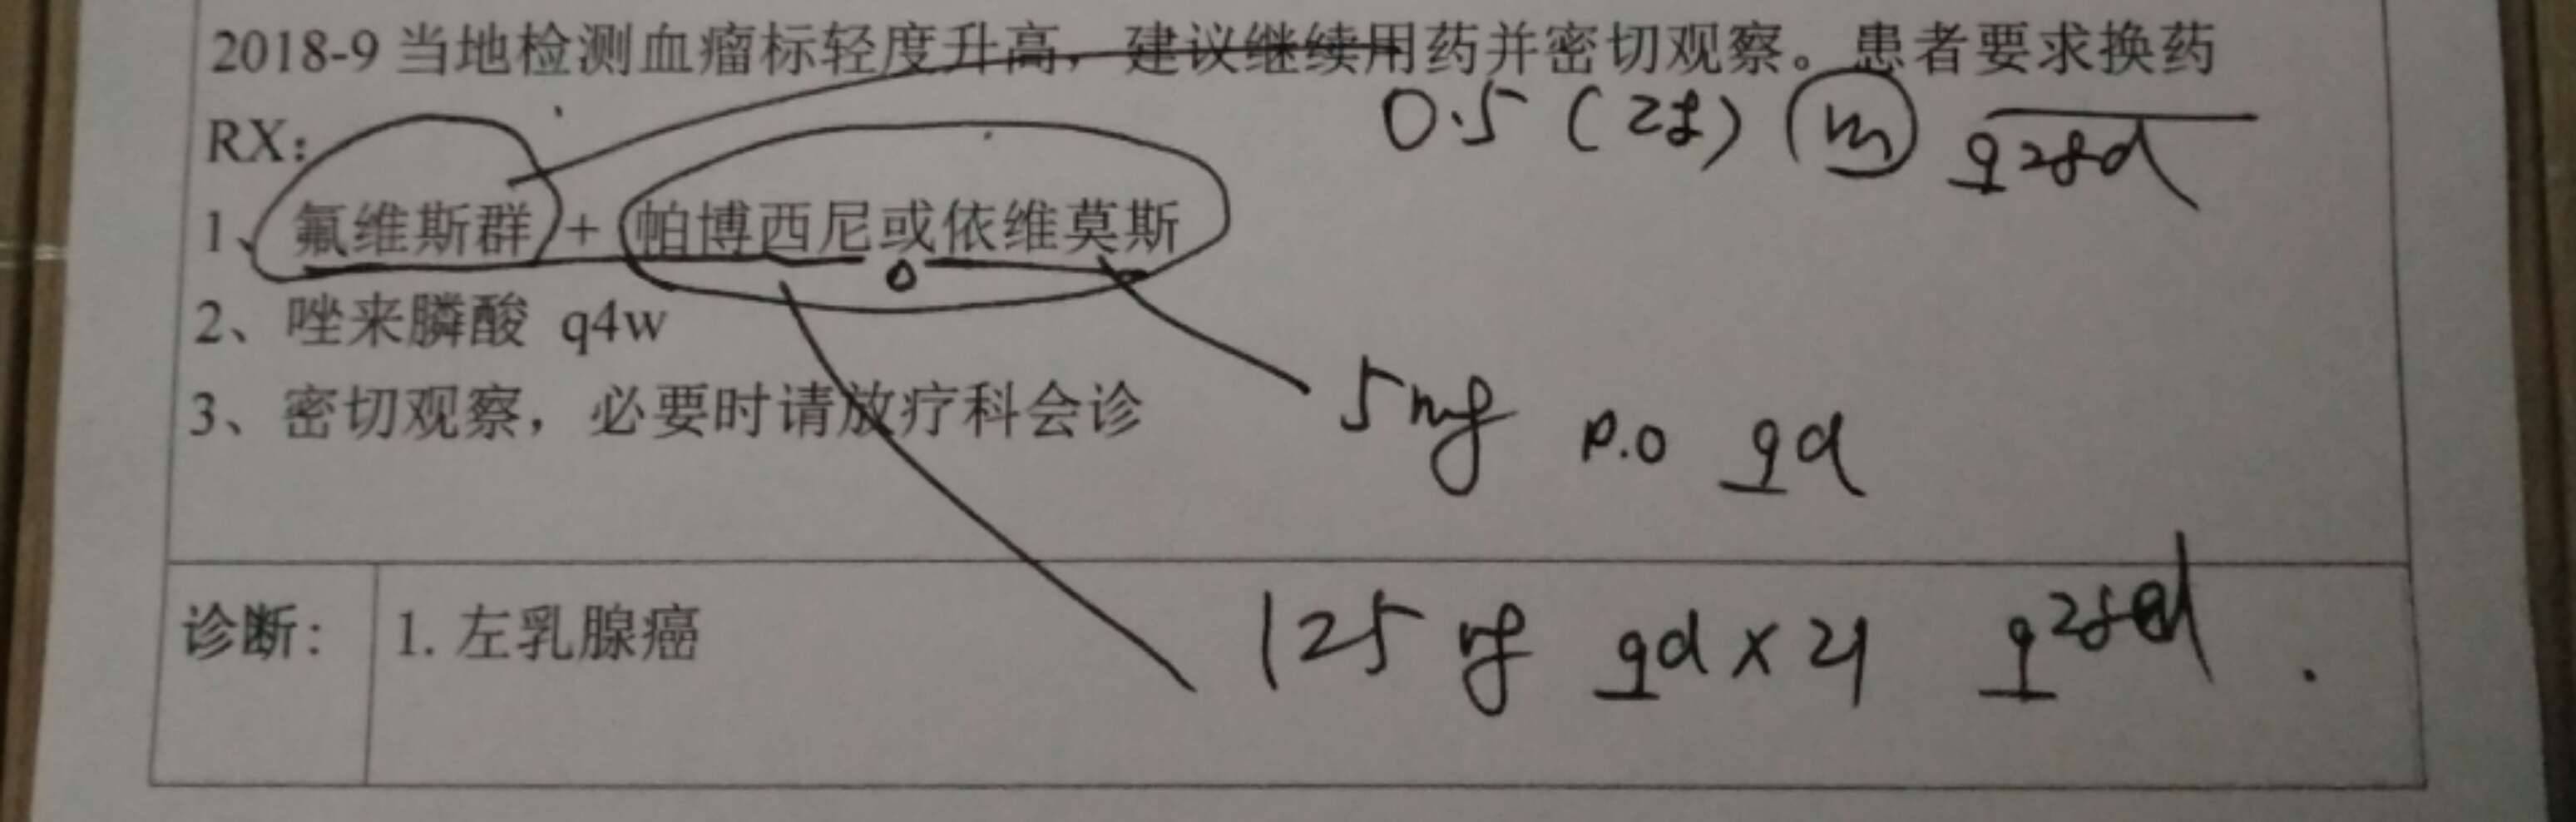 2018-9 当地检测血瘤标轻度升高，建议继续用药并密切观察。患者要求换药
RX：
0.5 (2支) im q28d
1、氟维斯群 + 帕博西尼或依维莫斯
2、唑来膦酸 q4w
3、密切观察，必要时请放疗科会诊
5mg p.o qd
诊断： 1. 左乳腺癌
125mg qd × 21 q28d.